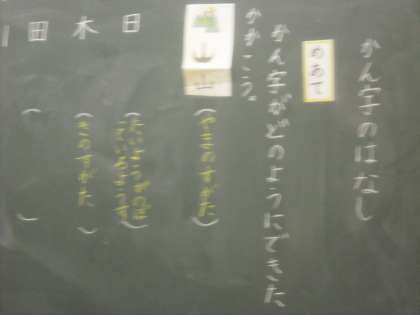 かん字のはなし
めあて
かん字がどのようにできた
かかこう。
山
山
(やまのすがた)
日
(たいようがのぼ
っているようす)
木
(きのすがた)
田
(　)